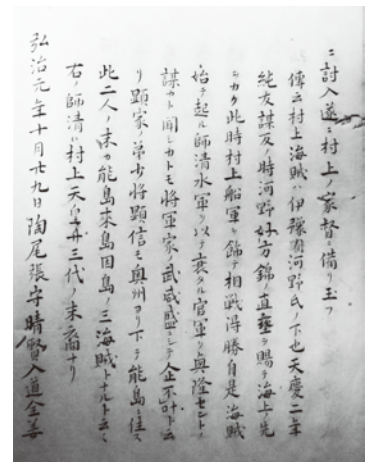 ニ討入遂ニ村上ノ家督ニ備リ玉フ
傳云村上海賊ハ伊豫國河野氏ノ下也天慶二年
純友謀反ノ時河野好方錦ノ直垂ヲ賜テ海上ノ先
シカク此時村上船軍ヲ錺テ相戦得勝自是海賊
始テ起ル師清水軍ヲ以テ衰タル官軍ヲ興隆セントノ
謀カト聞シカトモ将軍家ノ武威盛ニシテ企不叶ト云
リ顕家ノ弟少将顕信モ奥州ヨリ下テ能島ニ住ス
此二人ノ末カ能島来島因島ノ三海賊トナルト云々
右ノ師清ハ村上天皇廿三代ノ末裔ナリ
弘治元年十月廿九日陶尾張守晴賢入道全姜